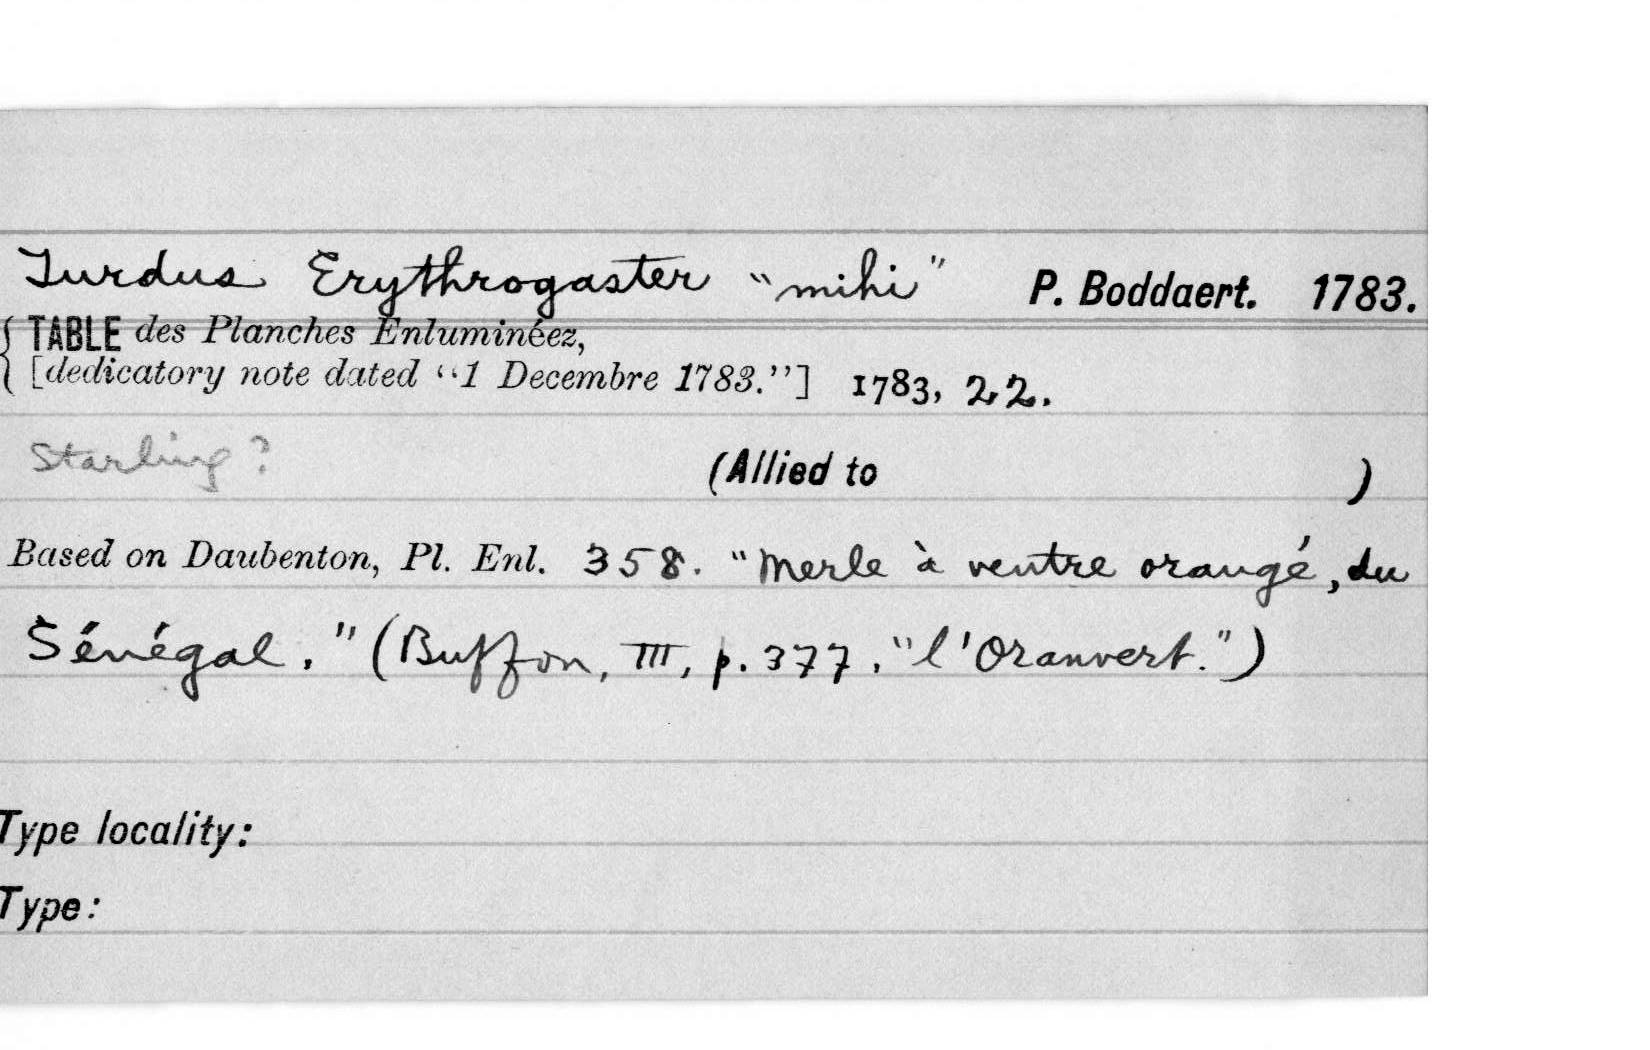 Turdus Erythrogaster "mihi" P. Boddaert. 1783.
{ TABLE des Planches Enluminéez,
[dedicatory note dated "1 Decembre 1783."] 1783, 22.
Starling? (Allied to )
Based on Daubenton, Pl. Enl. 358. "Merle à ventre orangé, du
Sénégal." (Buffon, III, p. 377. "l'Oranvert.")
Type locality:
Type: